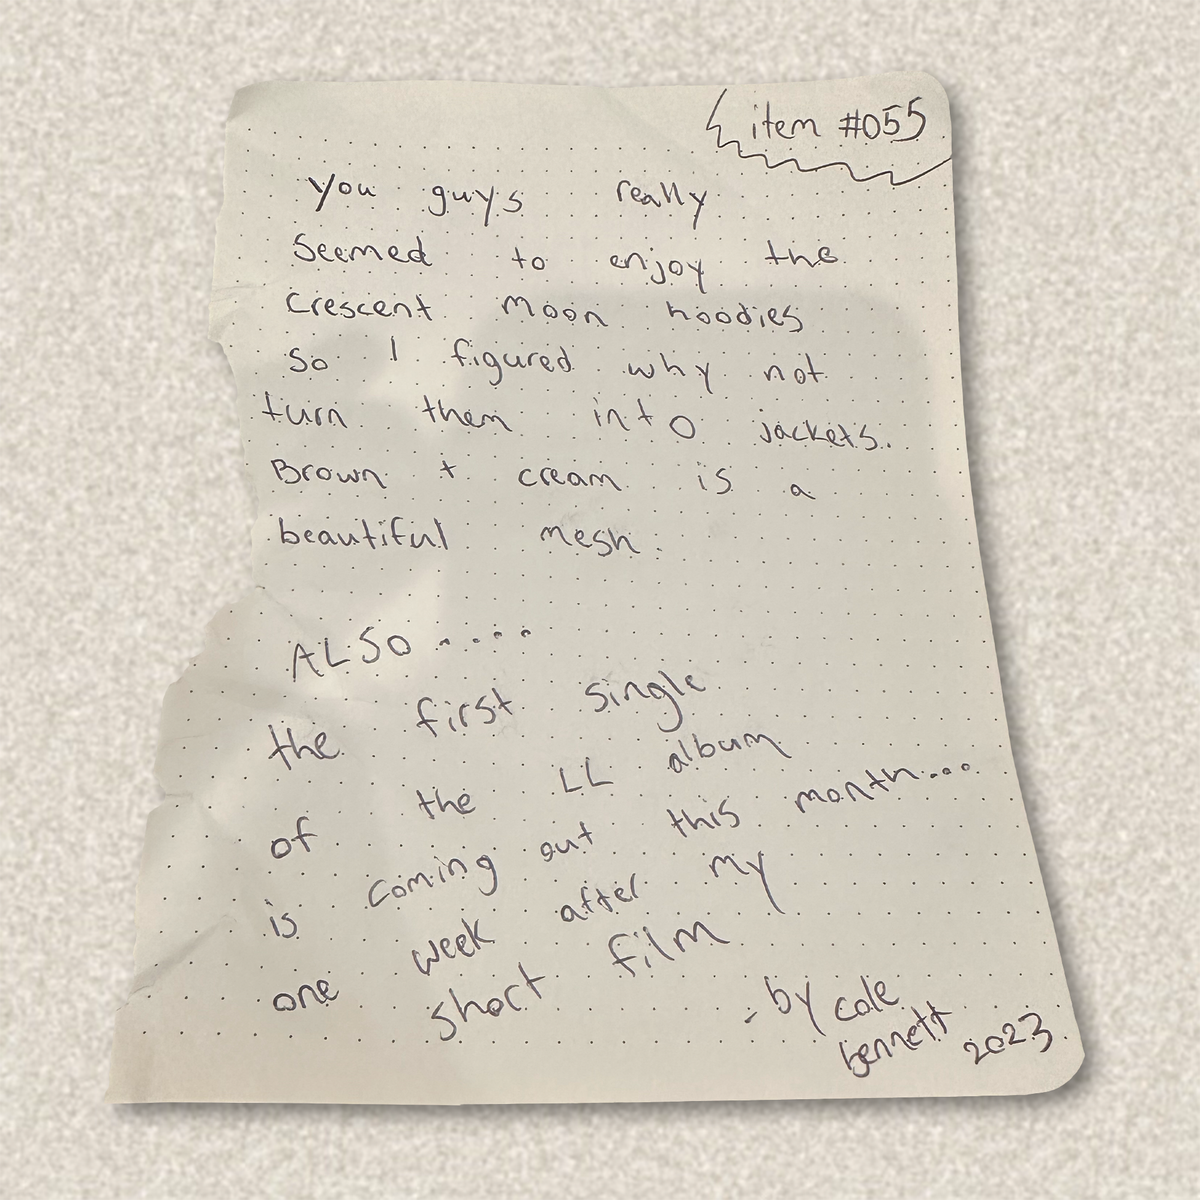 item #055
you guys really
seemed to enjoy the
crescent moon hoodies
so I figured why not
turn them into jackets.
Brown + cream is a
beautiful mesh.
ALSO ....
the first single
of the LL album
is coming out this month...
one week after my
short film
- by cole
bennett 2023